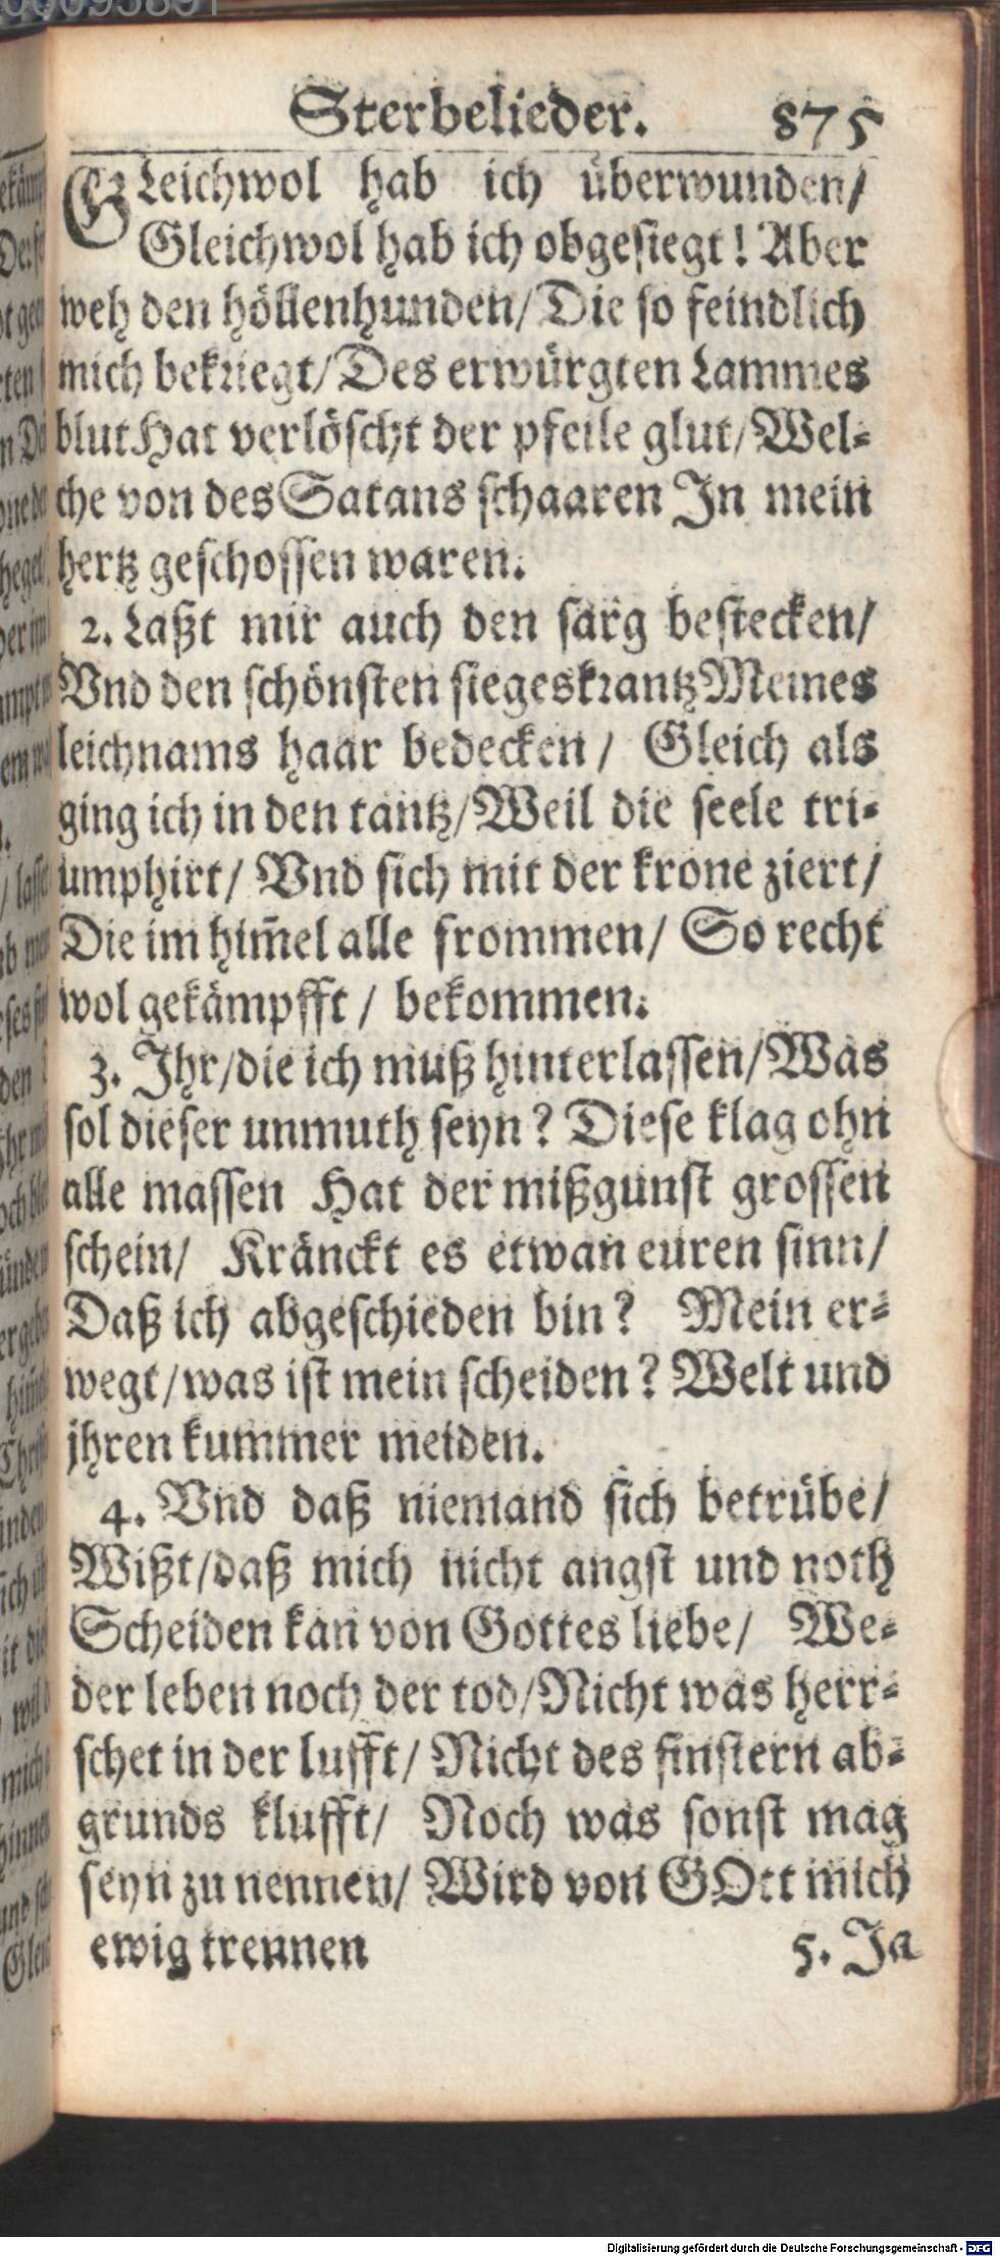 Sterbelieder. 875
GLeichwol hab ich überwunden/
Gleichwol hab ich obgesiegt! Aber
weh den höllenhunden/ Die so feindlich
mich bekriegt/ Des erwürgten Lammes
blut Hat verlöscht der pfeile glut/ Wel-
che von des Satans schaaren In mein
hertz geschossen waren.
2. Laßt mir auch den sarg bestecken/
Vnd den schönsten siegeskrantz Meines
leichnams haar bedecken/ Gleich als
ging ich in den tantz/ Weil die seele tri-
umphirt/ Vnd sich mit der krone ziert/
Die im him̃el alle frommen/ So recht
wol gekämpfft/ bekommen.
3. Ihr/ die ich muß hinterlassen/ Was
sol dieser unmuth seyn? Diese klag ohn
alle massen Hat der mißgunst grossen
schein/ Kränckt es etwan euren sinn/
Daß ich abgeschieden bin? Mein er-
wegt/ was ist mein scheiden? Welt und
jhren kummer meiden.
4. Vnd daß niemand sich betrübe/
Wißt/ daß mich nicht angst und noth
Scheiden kan von Gottes liebe/ We-
der leben noch der tod/ Nicht was herr-
schet in der lufft/ Nicht des finstern ab-
grunds klufft/ Noch was sonst mag
seyn zu nennen/ Wird von GOtt mich
ewig trennen
5. Ja
Digitalisierung gefördert durch die Deutsche Forschungsgemeinschaft - DFG